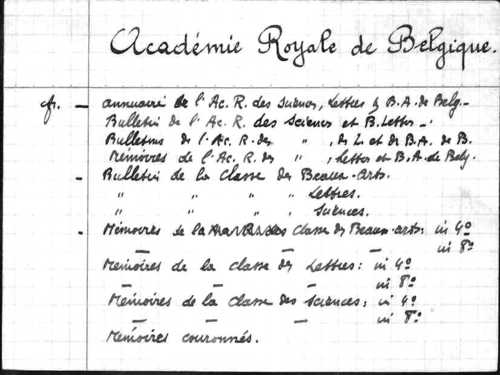 Académie Royale de Belgique.
cfr. — Annuaire de l'Ac. R. des Sciences, Lettres & B.A. de Belg. —
Bulletin de l'Ac. R. des Sciences et B. Lettres —
Bulletins de l'Ac. R. des " , des L. et des B.A. de B.
Mémoires de l'Ac. R. des " , Lettres et B.A. de Belg.
— Bulletin de la Classe des Beaux-Arts.
" " " " Lettres.
" " " " Sciences.
— Mémoires de la Classe des Beaux-Arts: in 4º
— — — — in 8º
Mémoires de la Classe des Lettres: in 4º
— — — in 8º
Mémoires de la Classe des Sciences: in 4º
— — — in 8º
Mémoires couronnés.